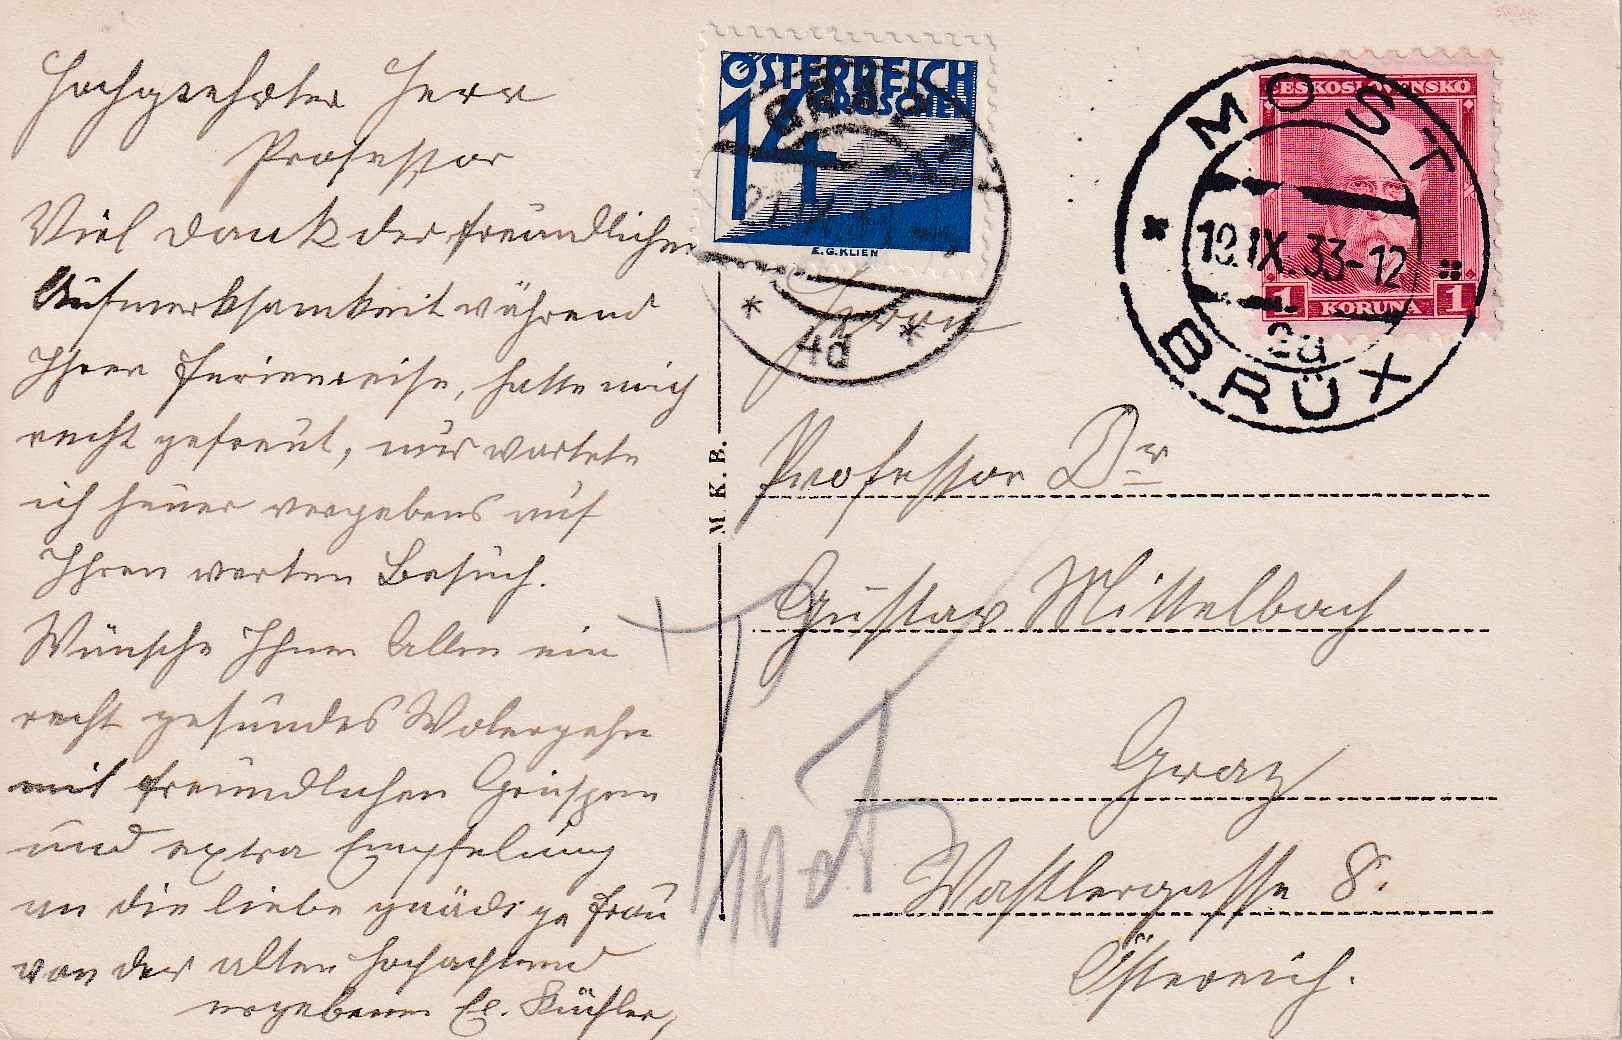 Hochgeehrter Herr
Professor
Viel Dank der freundlichen
Aufmerksamkeit während
Ihrer Ferienreise, hatte mich
recht gefreut, nur wartete
ich heuer vergebens auf
Ihren werten Besuch.
Wünsche Ihnen Allen ein
recht gesundes Wolergehn
mit freundlichen Grüßen
und extra Empfelung
an die liebe gnädige Frau
von der alten hochachtend
ergebenen Küchler,
ÖSTERREICH
GROSCHEN
14
E.G.KLIEN
GRAZ
* 4d *
ČESKOSLOVENSKO
1 KORUNA 1
MOST
19.IX.33-12
2a
BRÜX
M. K. B.
Herrn
Professor Dr
Gustav Mittelbach
Graz
Wastlergasse 8.
Österreich.
T